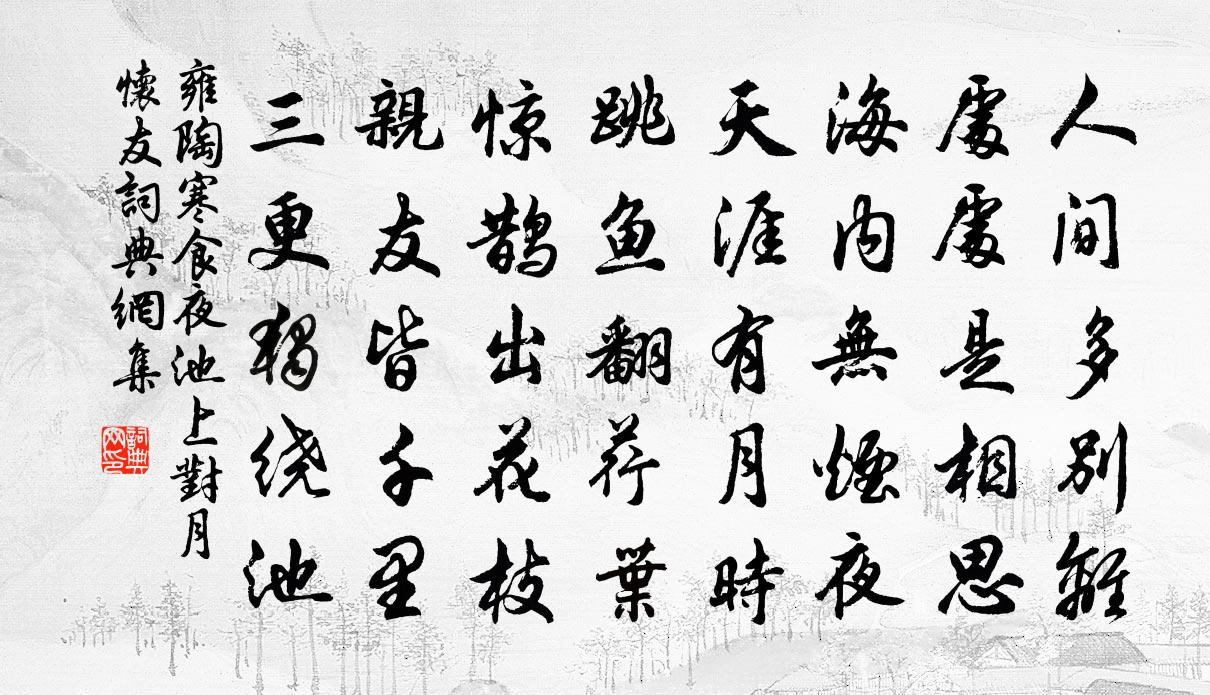 人间多别離
處處是相思
海内無煙夜
天涯有月時
跳鱼翻荇葉
惊鹊出花枝
親友皆千里
三更独绕池
雍陶寒食夜池上對月
懷友詞典網集
詞典
网印